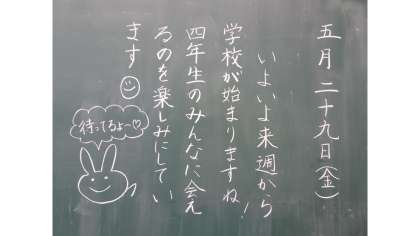 五月二十九日(金)
いよいよ来週から
学校が始まりますね!
四年生のみんなに会え
るのを楽しみにしてい
ます
待ってるよー♡